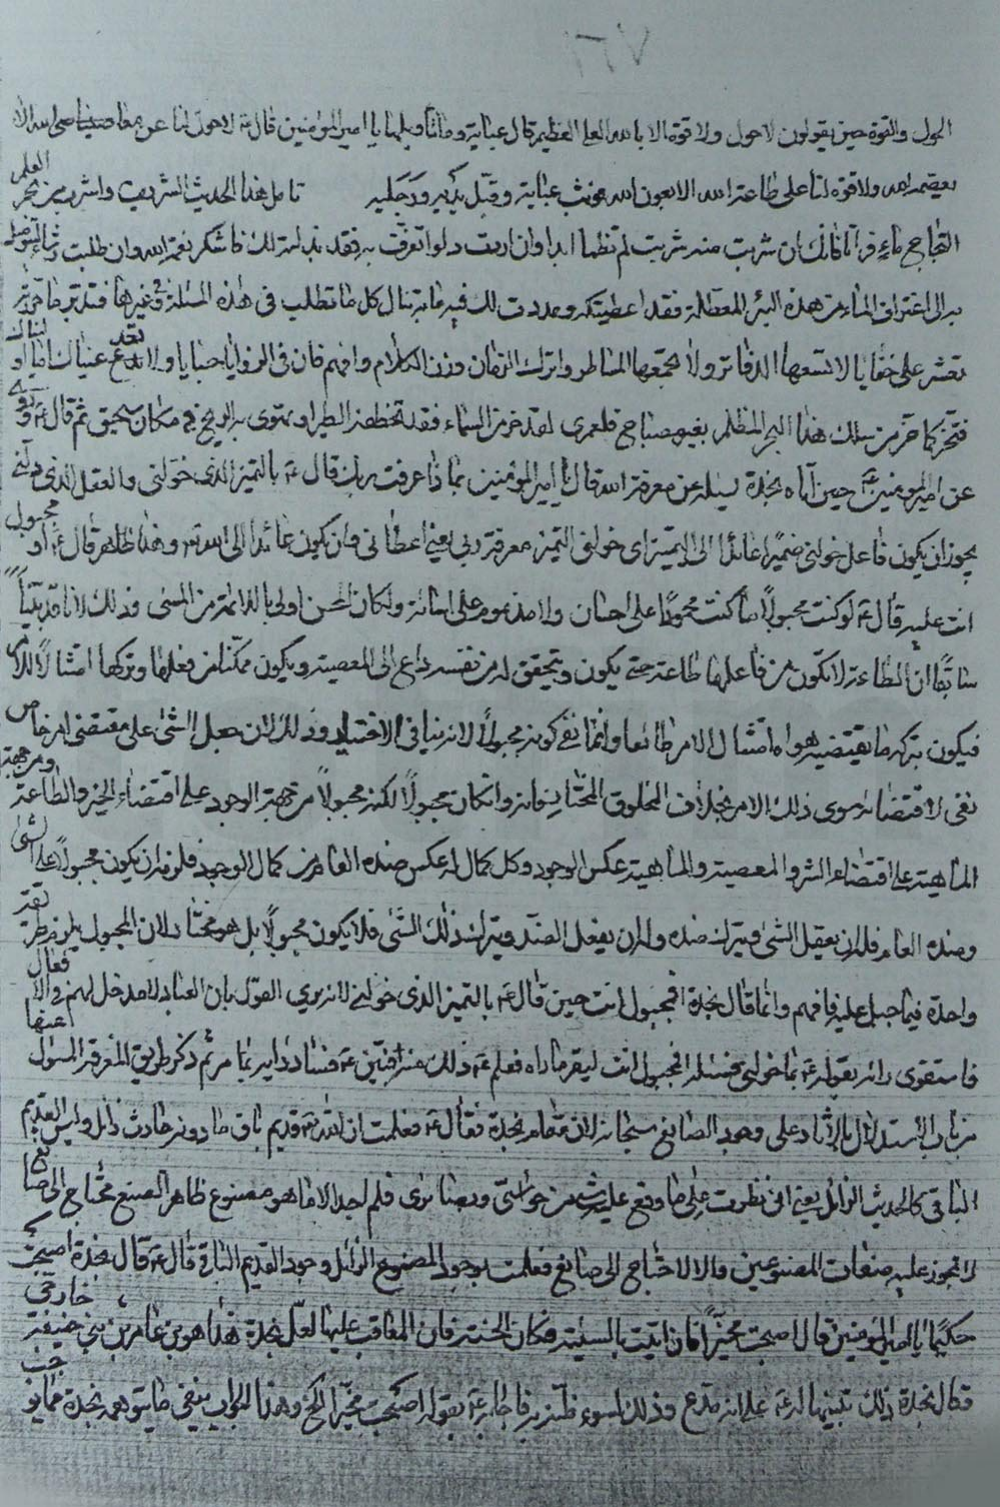 الحول والقوة حين يقولون لا حول ولا قوة الا بالله العلي العظيم قال عباية وما تأويلها يا امير المؤمنين قال ع لا حول لنا عن معاصي الله الا
بعصمة الله ولا قوة لنا على طاعة الله الا بعون الله فوثب عباية وقبّل يديه ورجليه تامل هذا الحديث الشريف واشرب من بحر العلم
ماء فراتا فانك ان شربت منه شربت لم تظما ابدا وان اردت دلوا تغرف به فقد بذلته لك فاشكر نعمة الله وان طلبت
به الى اغتراف الماء من هذه البئر المعطلة فقد اعطيتكه وعددت لك فيه ما به تنال كل ما تطلب في هذه المسئلة وفي غيرها فتدبر ما قررته
تعثر على خفايا لا تسعها الدفاتر ولا تجمعها المساطر واترك وزن الكلام وافهم فان في الزوايا خبايا ولا تدع عينيك
فتخر كما خر من سلك هذا البحر المظلم بغير مصباح فلعمري لقد خر من السماء فتخطفه الطير او تهوي به الريح في مكان سحيق ثم قال ع
عن امير المؤمنين ع حين اتاه نجدة يسئله عن معرفة الله قال يا امير المؤمنين بماذا عرفت ربك قال ع بالتمييز الذي خولني والعقل الذي دلني
يجوز ان يكون فاعل خولني ضميرا عائدا الى التمييز اي خولني التمييز معرفة ربي يعني اعطاني وان يكون عائدا الى الله تعالى وهذا ظاهر قال ع أومجبول
انت عليه قال ع لو كنت مجبولا ما كنت محمودا على احسان ولا مذموما على اسائة ولكان المحسن اولى باللائمة من المسئ وذلك لانا قد بيّنا
سابقا ان الطاعة لا تكون من فاعلها طاعة حتى يكون ويتحقق له من نفسه داع الى المعصية ويكون ممكنا من فعلها وتركها امتثالا للامر
فيكون بتركه ما يقتضيه هواه امتثال الامر طائعا وانما نفى كونه مجبولا لانه ينافي الاختيار وذلك لان جعل الشئ على مقتضى امر خاص
نفي لاقتضائه سوى ذلك الامر بخلاف المخلوق المختار فانه وان كان مجبولا لكنه مجبولا من جهة الوجود على اقتضاء الخير والطاعة ومن جهة
الماهية على اقتضاء الشر والمعصية والماهية عكس الوجود وكل كمال له عكس ضده العام من كمال الوجود فلزم ان يكون مجبولا على الشئ
وضده العام فله ان يفعل الشئ ويترك ضده وله ان يفعل الضد ويترك ذلك الشئ فلا يكون مجبولا بل هو مختار لان المجبول يلزم طريقة
واحدة فيما جبل عليه فافهم وانما قال نجدة افمجبول انت حين قال ع بالتمييز الذي خولني لانه يرى القول بان العباد لا مدخل لهم في الافعال
فاستقوى رأيه بقوله ع بما خولني فسئله افمجبول انت ليقرر ما رآه فعلم ع ذلك منه فبيّن ع فساد رأيه بما مر ثم ذكر طريق المعرفة المسئول عنها
من باب الاستدلال بالآثار على وجود الصانع سبحانه لانه مقام نجدة فقال ع فعلمت ان الله تعالى قديم باق ما دونه حادث زائل وليس القديم
الباقي كالحديث الزائل يعني اني نظرت الى ما وقع عليه شئ من حواسي فلم اجد الا ما هو مصنوع ظاهر الصنع محتاج الى صانع
لا تجوز عليه صفات المصنوعين والا لاحتاج الى صانع فعلمت بوجود المصنوع الزائل وجود القديم الباقي قال ع قال نجدة اصبحت
حكيما يا امير المؤمنين قال اصبحت مخيرا فان اتيت بالسيئة مكان الحسنة فانا المعاقب عليها لعل نجدة هذا هو بن عامر من بني حنيفة خارجي
فقال نجدة ذلك تنبيها له ع على انه مدع وذلك لسوء ظنه به فاجابه ع بقوله اصبحت مخيرا الخ وهذا الجواب ينفي ما يتوهمه نجدة مما